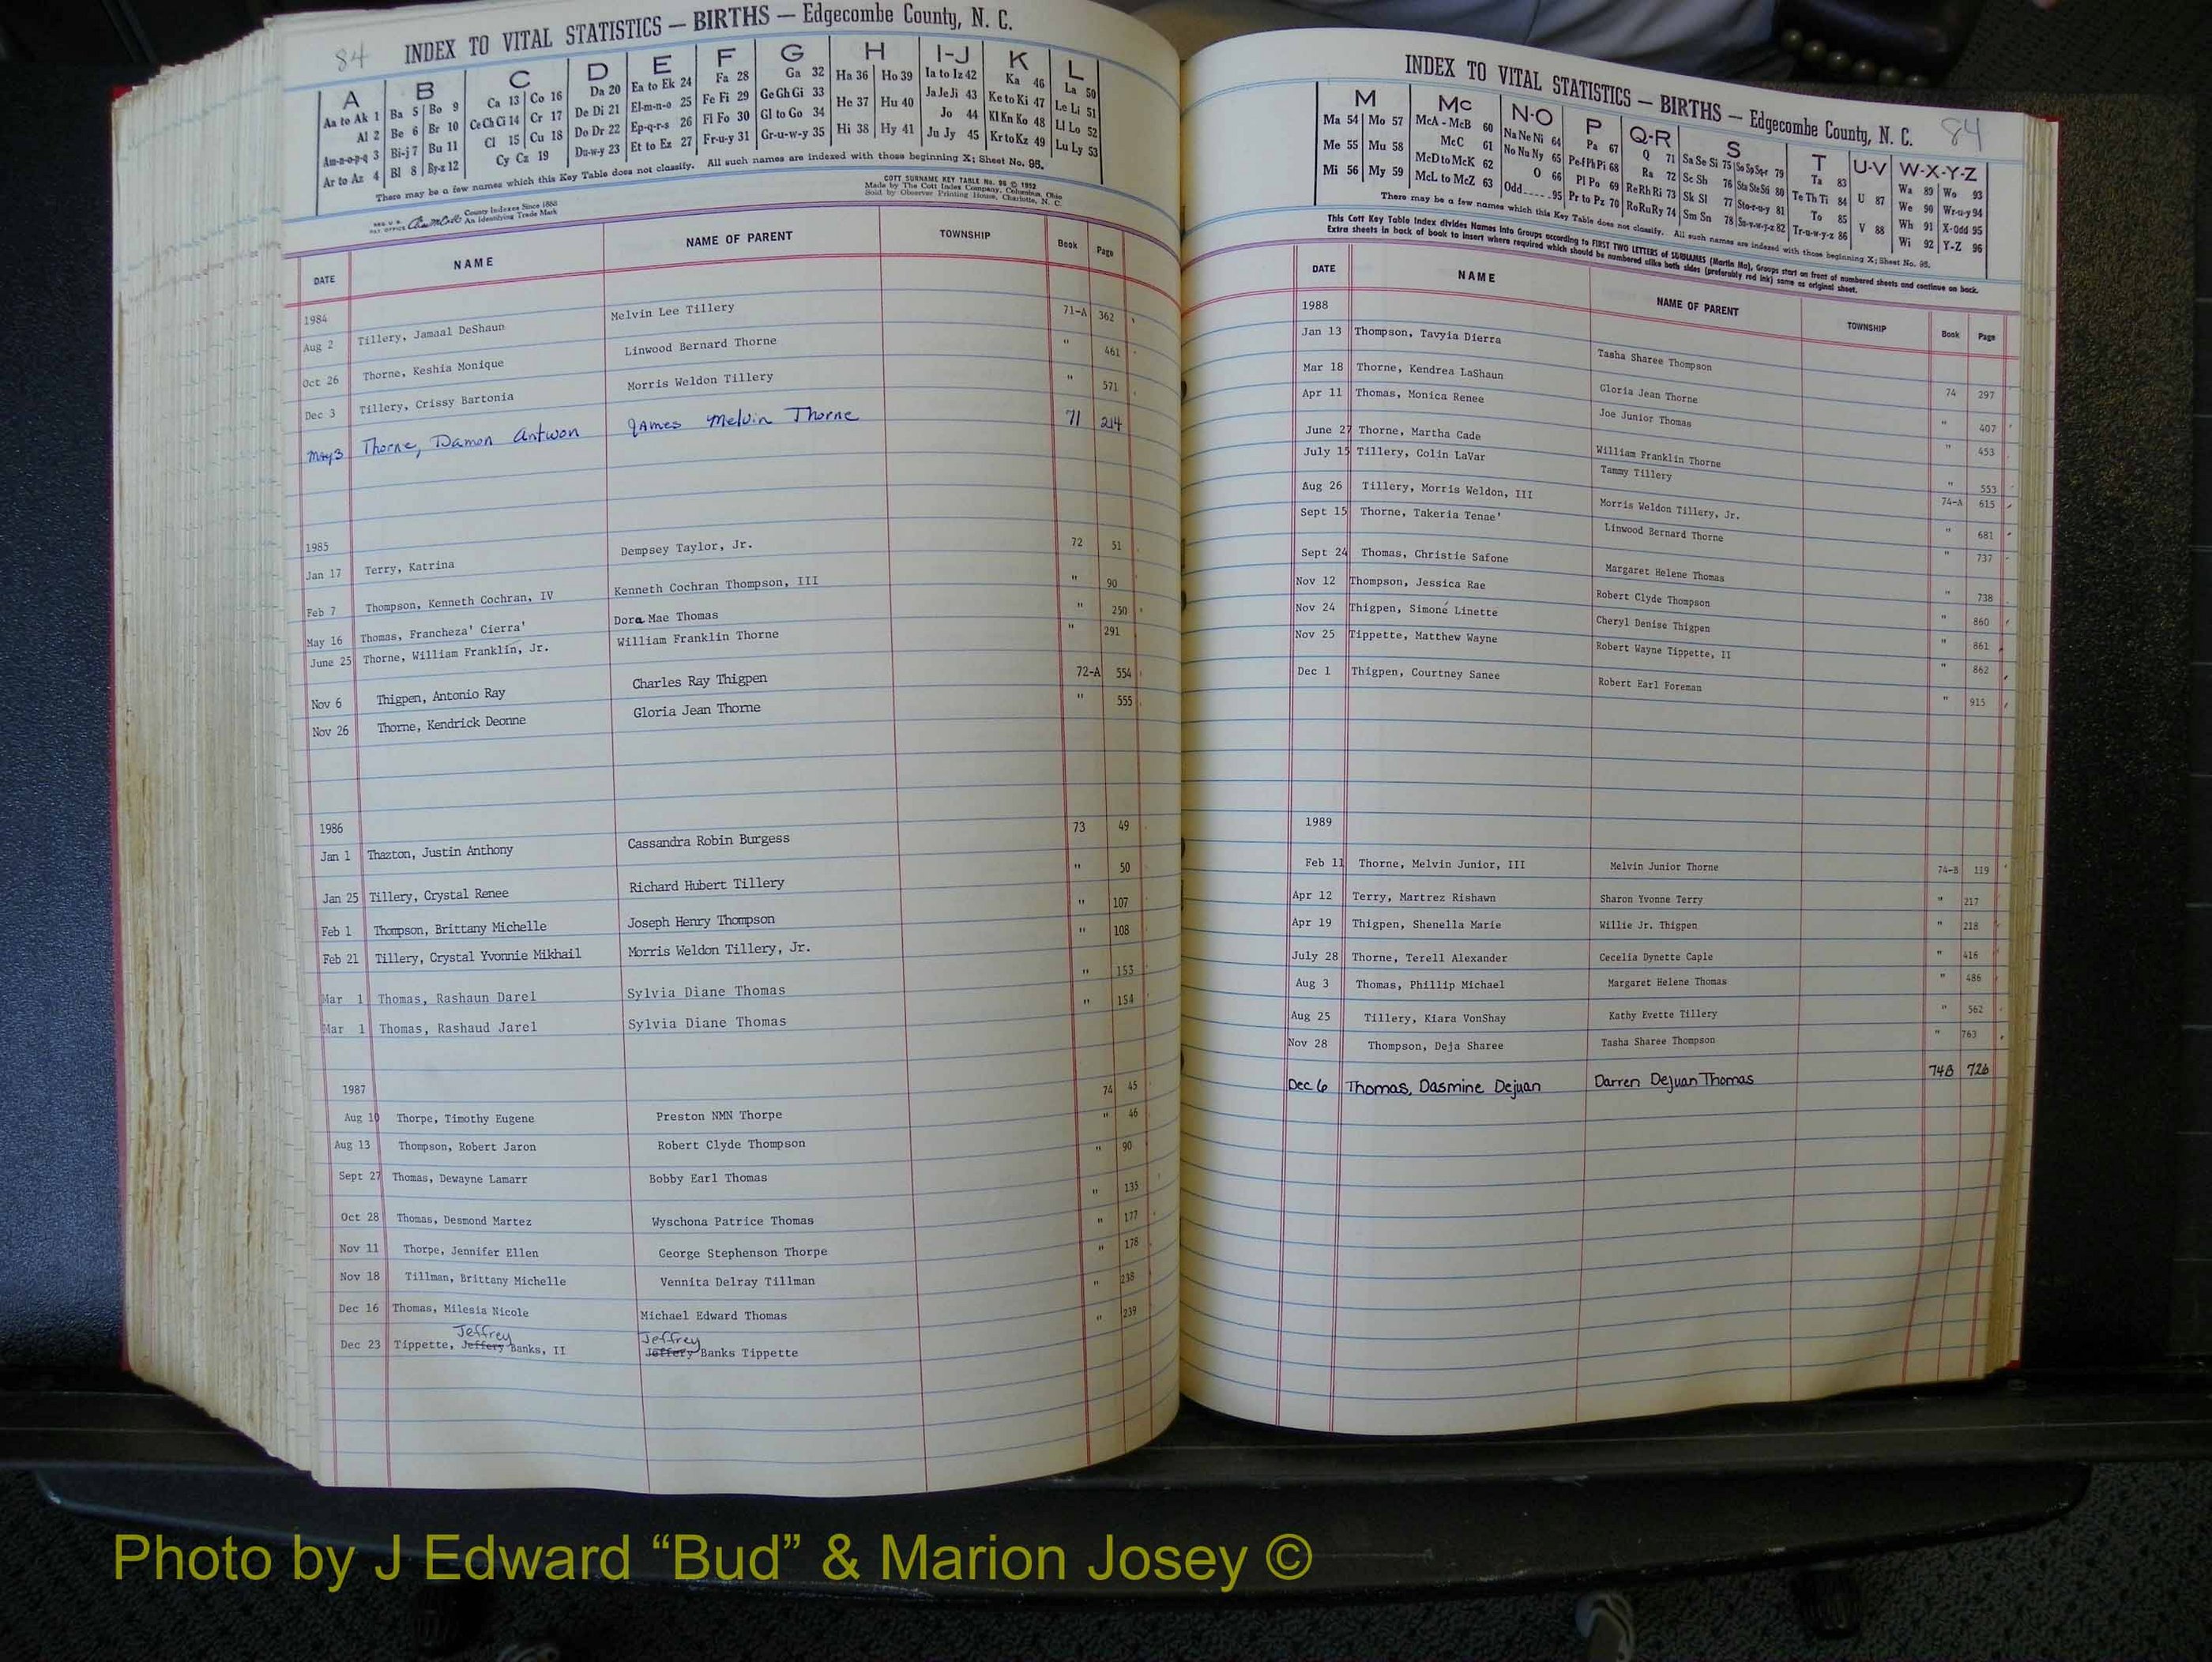 84 INDEX TO VITAL STATISTICS — BIRTHS — Edgecombe County, N. C.
A B C D E F G H I-J K L
Aa to Ak 1 Ba 5 Bo 9 Ca 13 Co 16 Da 20 Ea to Ek 24 Fa 28 Ga 32 Ha 36 Ho 39 Ia to Iz 42 Ka 46 La 50
Al 2 Be 6 Br 10 Ce Ch Ci 14 Cr 17 De Di 21 El-m-n-o 25 Fe Fi 29 Ge Gh Gi 33 He 37 Hu 40 Ja Je Ji 43 Ke to Ki 47 Le Li 51
Am-n-o-p-q 3 Bi-j 7 Bu 11 Cl 15 Cu 18 Do Dr 22 Ep-q-r-s 26 Fl Fo 30 Gl to Go 34 Hi 38 Hy 41 Jo 44 Kl Kn Ko 48 Ll Lo 52
Ar to Az 4 Bl 8 By-z 12 Cy Cz 19 Du-w-y 23 Et to Ez 27 Fr-u-y 31 Gr-u-w-y 35 Ju Jy 45 Kr to Kz 49 Lu Ly 53
There may be a few names which this Key Table does not classify. All such names are indexed with those beginning X; Sheet No. 95.
County Indexes Since 1888
An Identifying Trade Mark
Made by The Cott Index Company, Columbus, Ohio
Sold by Observer Printing House, Charlotte, N. C.
DATE NAME NAME OF PARENT TOWNSHIP Book Page
1984
Aug 2 Tillery, Jamaal DeShaun Melvin Lee Tillery 71-A 362
Oct 26 Thorne, Keshia Monique Linwood Bernard Thorne " 461
Dec 3 Tillery, Crissy Bartonia Morris Weldon Tillery " 571
May 3 Thorne, Damon Antwon James Melvin Thorne 71 214
1985
Jan 17 Terry, Katrina Dempsey Taylor, Jr. 72 51
Feb 7 Thompson, Kenneth Cochran, IV Kenneth Cochran Thompson, III " 90
May 16 Thomas, Francheza' Cierra' Dora Mae Thomas " 250
June 25 Thorne, William Franklin, Jr. William Franklin Thorne " 291
Nov 6 Thigpen, Antonio Ray Charles Ray Thigpen 72-A 554
Nov 26 Thorne, Kendrick Deonne Gloria Jean Thorne " 555
1986
Jan 1 Thazton, Justin Anthony Cassandra Robin Burgess 73 49
Jan 25 Tillery, Crystal Renee Richard Hubert Tillery " 50
Feb 1 Thompson, Brittany Michelle Joseph Henry Thompson " 107
Feb 21 Tillery, Crystal Yvonnie Mikhail Morris Weldon Tillery, Jr. " 108
Mar 1 Thomas, Rashaun Darel Sylvia Diane Thomas " 153
Mar 1 Thomas, Rashaud Jarel Sylvia Diane Thomas " 154
1987
Aug 10 Thorpe, Timothy Eugene Preston NMN Thorpe 74 45
Aug 13 Thompson, Robert Jaron Robert Clyde Thompson " 46
Sept 27 Thomas, Dewayne Lamarr Bobby Earl Thomas " 90
Oct 28 Thomas, Desmond Martez Wyschona Patrice Thomas " 135
Nov 11 Thorpe, Jennifer Ellen George Stephenson Thorpe " 177
Nov 18 Tillman, Brittany Michelle Vennita Delray Tillman " 178
Dec 16 Thomas, Milesia Nicole Michael Edward Thomas " 238
Jeffrey Jeffrey
Dec 23 Tippette, Jeffery Banks, II Jeffery Banks Tippette " 239
INDEX TO VITAL STATISTICS — BIRTHS — Edgecombe County, N. C. 84
M Mc N-O P Q-R S T U-V W-X-Y-Z
Ma 54 Mo 57 McA - McB 60 Na Ne Ni 64 Pa 67 Q 71 Sa Se Si 75 So Sp Sq-r 79 Ta 83 U 87 Wa 89 Wo 93
Me 55 Mu 58 McC 61 No Nu Ny 65 Pe Pf Ph Pi 68 Ra 72 Sc Sh 76 Sta Ste Sti 80 Te Th Ti 84 V 88 We 90 Wr-u-y 94
Mi 56 My 59 McD to McK 62 O 66 Pl Po 69 Re Rh Ri 73 Sk Sl 77 Sto-r-u-y 81 To 85 Wh 91 X-Odd 95
McL to McZ 63 Odd.....95 Pr to Pz 70 Ro Ru Ry 74 Sm Sn 78 Su-v-w-y-z 82 Tr-u-w-y-z 86 Wi 92 Y-Z 96
There may be a few names which this Key Table does not classify. All such names are indexed with those beginning X; Sheet No. 95.
This Cott Key Table Index divides Names into Groups according to FIRST TWO LETTERS of SURNAMES (Martin Ma), Groups start on front of numbered sheets and continue on back.
Extra sheets in back of book to insert where required which should be numbered alike both sides (preferably red ink) same as original sheet.
DATE NAME NAME OF PARENT TOWNSHIP Book Page
1988
Jan 13 Thompson, Tavyia Dierra Tasha Sharee Thompson 74 297
Mar 18 Thorne, Kendrea LaShaun Gloria Jean Thorne " 407
Apr 11 Thomas, Monica Renee Joe Junior Thomas " 453
June 27 Thorne, Martha Cade William Franklin Thorne " 553
July 15 Tillery, Colin LaVar Tammy Tillery 74-A 615
Aug 26 Tillery, Morris Weldon, III Morris Weldon Tillery, Jr. " 681
Sept 15 Thorne, Takeria Tenae' Linwood Bernard Thorne " 737
Sept 24 Thomas, Christie Safone Margaret Helene Thomas " 738
Nov 12 Thompson, Jessica Rae Robert Clyde Thompson " 860
Nov 24 Thigpen, Simoné Linette Cheryl Denise Thigpen " 861
Nov 25 Tippette, Matthew Wayne Robert Wayne Tippette, II " 862
Dec 1 Thigpen, Courtney Sanee Robert Earl Foreman " 915
1989
Feb 11 Thorne, Melvin Junior, III Melvin Junior Thorne 74-B 119
Apr 12 Terry, Martrez Rishawn Sharon Yvonne Terry " 217
Apr 19 Thigpen, Shenella Marie Willie Jr. Thigpen " 218
July 28 Thorne, Terell Alexander Cecelia Dynette Caple " 416
Aug 3 Thomas, Phillip Michael Margaret Helene Thomas " 486
Aug 25 Tillery, Kiara VonShay Kathy Evette Tillery " 562
Nov 28 Thompson, Deja Sharee Tasha Sharee Thompson " 763
Dec 6 Thomas, Dasmine Dejuan Darren DeJuan Thomas 74B 726
Photo by J Edward “Bud” & Marion Josey ©